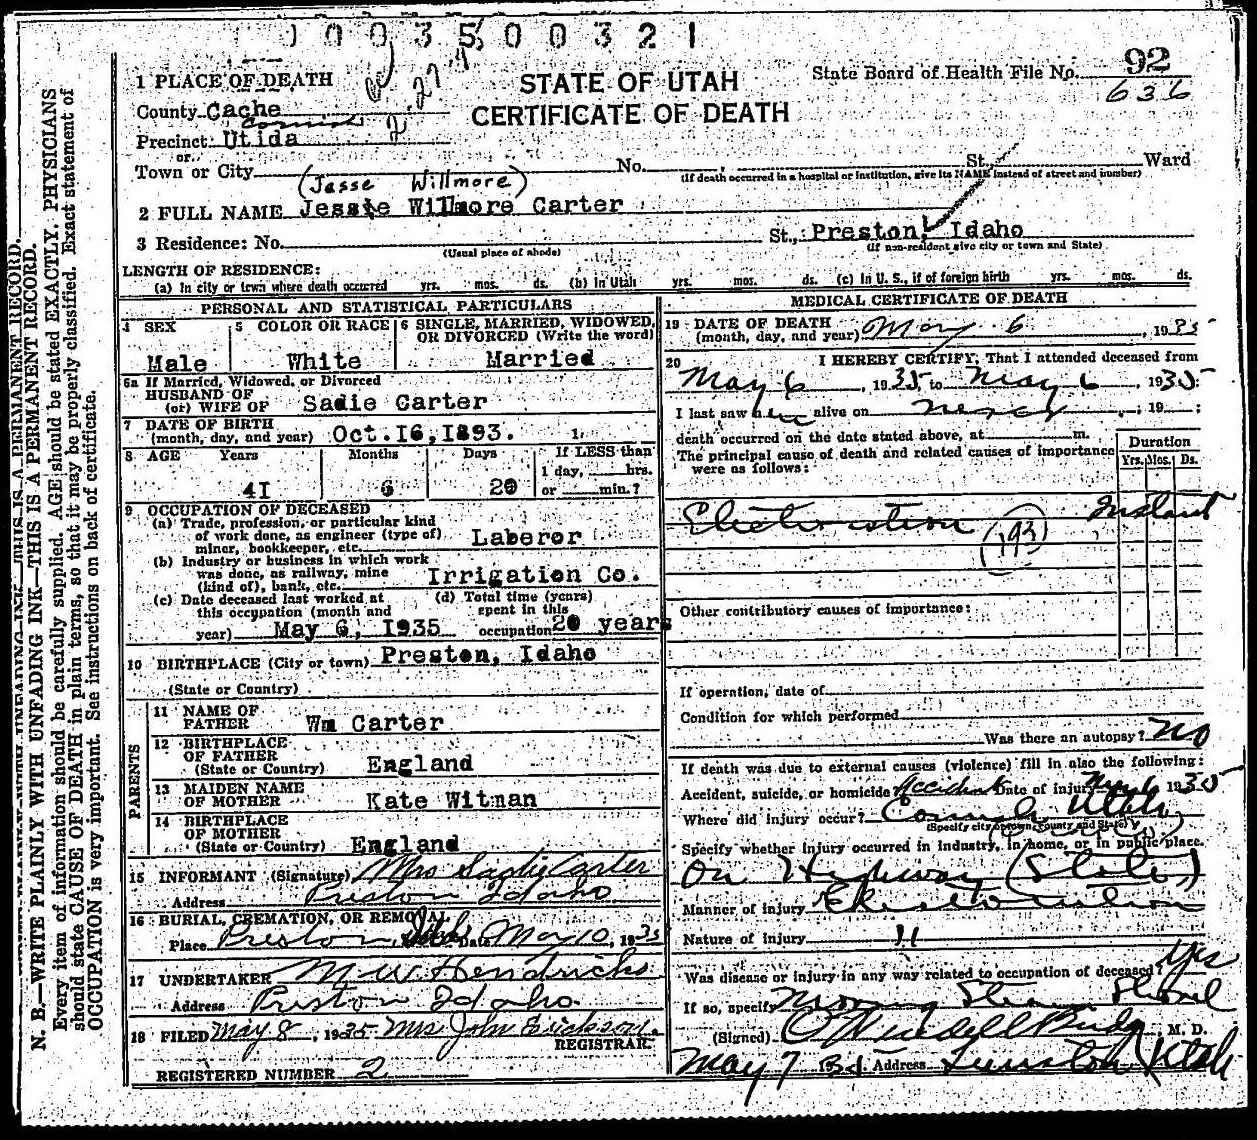 0 0 0 3 5 0 0 3 2 1
1 PLACE OF DEATH
County Cache
Cornish
Precinct Utida
or
Town or City
STATE OF UTAH
CERTIFICATE OF DEATH
State Board of Health File No. 92
636
No. St., Ward
(If death occurred in a hospital or institution, give its NAME instead of street and number)
(Jesse Willmore)
2 FULL NAME Jessie Willmore Carter
3 Residence: No. St., Preston, Idaho
(Usual place of abode) (If non-resident give city or town and State)
LENGTH OF RESIDENCE:
(a) In city or town where death occurred yrs. mos. ds. (b) In Utah yrs. mos. ds. (c) In U. S., if of foreign birth yrs. mos. ds.
PERSONAL AND STATISTICAL PARTICULARS
4 SEX
Male
5 COLOR OR RACE
White
6 SINGLE, MARRIED, WIDOWED,
OR DIVORCED (Write the word)
Married
6a If Married, Widowed, or Divorced
HUSBAND OF
(or) WIFE OF Sadie Carter
7 DATE OF BIRTH
(month, day, and year) Oct. 16, 1893.
8 AGE Years Months Days If LESS than
1 day, hrs.
41 6 20 or min.?
9 OCCUPATION OF DECEASED
(a) Trade, profession, or particular kind
of work done, as engineer (type of)
miner, bookkeeper, etc. Laberor
(b) Industry or business in which work
was done, as railway, mine
(kind of), bank, etc. Irrigation Co.
(c) Date deceased last worked at
this occupation (month and
year) May 6, 1935
(d) Total time (years)
spent in this
occupation 20 years
10 BIRTHPLACE (City or town) Preston, Idaho
(State or Country)
PARENTS
11 NAME OF
FATHER Wm Carter
12 BIRTHPLACE
OF FATHER
(State or Country) England
13 MAIDEN NAME
OF MOTHER Kate Witnan
14 BIRTHPLACE
OF MOTHER
(State or Country) England
15 INFORMANT (Signature) Mrs Sadie Carter
Address Preston Idaho
16 BURIAL, CREMATION, OR REMOVAL
Place Preston, Idaho Date May 10, 1935
17 UNDERTAKER M W Hendricks
Address Preston Idaho.
18 FILED May 8, 1935 Mrs John Erickson.
REGISTRAR
REGISTERED NUMBER 2
MEDICAL CERTIFICATE OF DEATH
19 DATE OF DEATH
(month, day, and year) May 6, 1935
20 I HEREBY CERTIFY, That I attended deceased from
May 6, 1935, to May 6, 1935:
I last saw him alive on never, 19 ;
death occurred on the date stated above, at m.
The principal cause of death and related causes of importance
were as follows:
Duration
Yrs. Mos. Ds.
Electrocution (193) Instant
Other contributory causes of importance:
If operation, date of
Condition for which performed
Was there an autopsy? No
If death was due to external causes (violence) fill in also the following:
Accident, suicide, or homicide? Accident Date of injury May 6 1935
Where did injury occur? Cornish Utah
(Specify city or town, county and State)
Specify whether injury occurred in industry, in home, or in public place.
On Highway (State)
Manner of injury Electrocution
Nature of injury "
Was disease or injury in any way related to occupation of deceased? Yes
If so, specify Moving Steam Shovel
(Signed) , M. D.
May 7 Address Lewiston Utah
N. B.—WRITE PLAINLY WITH UNFADING INK—THIS IS A PERMANENT RECORD.
Every item of information should be carefully supplied. AGE should be stated EXACTLY. PHYSICIANS
should state CAUSE OF DEATH in plain terms, so that it may be properly classified. Exact statement of
OCCUPATION is very important. See instructions on back of certificate.